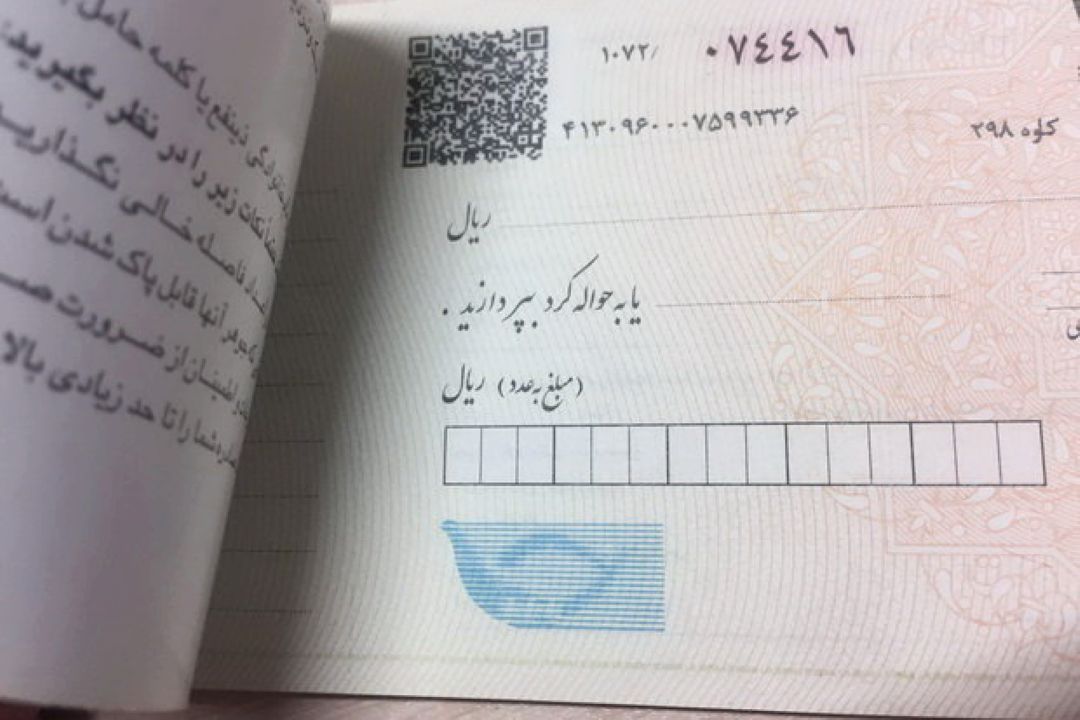 حامل
ذینفع یا کلمه
نکات زیر را در نظر بگیرید:
فاصله خالی نگذارید
آنها قابل پاک شدن است
اطمینان از ضرورت
شما را تا حد زیادی بالا
۱۰۷۲/ ۰۷۴۴۱۶
۴۱۳۰۹۶۰۰۰۷۵۹۹۳۳۶
کاوه ۲۹۸
ریال
یا به حواله کرد بپردازید .
(مبلغ به عدد) ریال